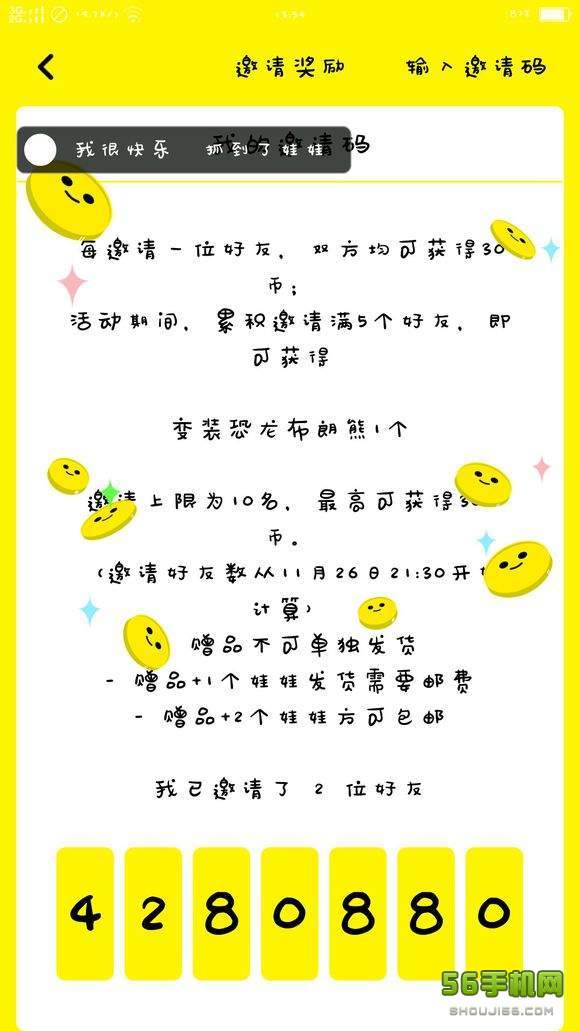 3G
2G
14.7K/s
15:54
87%
邀请奖励 输入邀请码
我的邀请码
我很快乐 抓到了娃娃
每邀请一位好友，双方均可获得30
币；
活动期间，累积邀请满5个好友，即
可获得
变装恐龙布朗熊1个
邀请上限为10名，最高可获得3
币。
（邀请好友数从11月26日21:30开始
计算）
赠品不可单独发货
- 赠品+1个娃娃发货需要邮费
- 赠品+2个娃娃方可包邮
我已邀请了 2 位好友
4 2 8 0 8 8 0
56手机网
SHOUJI56.COM